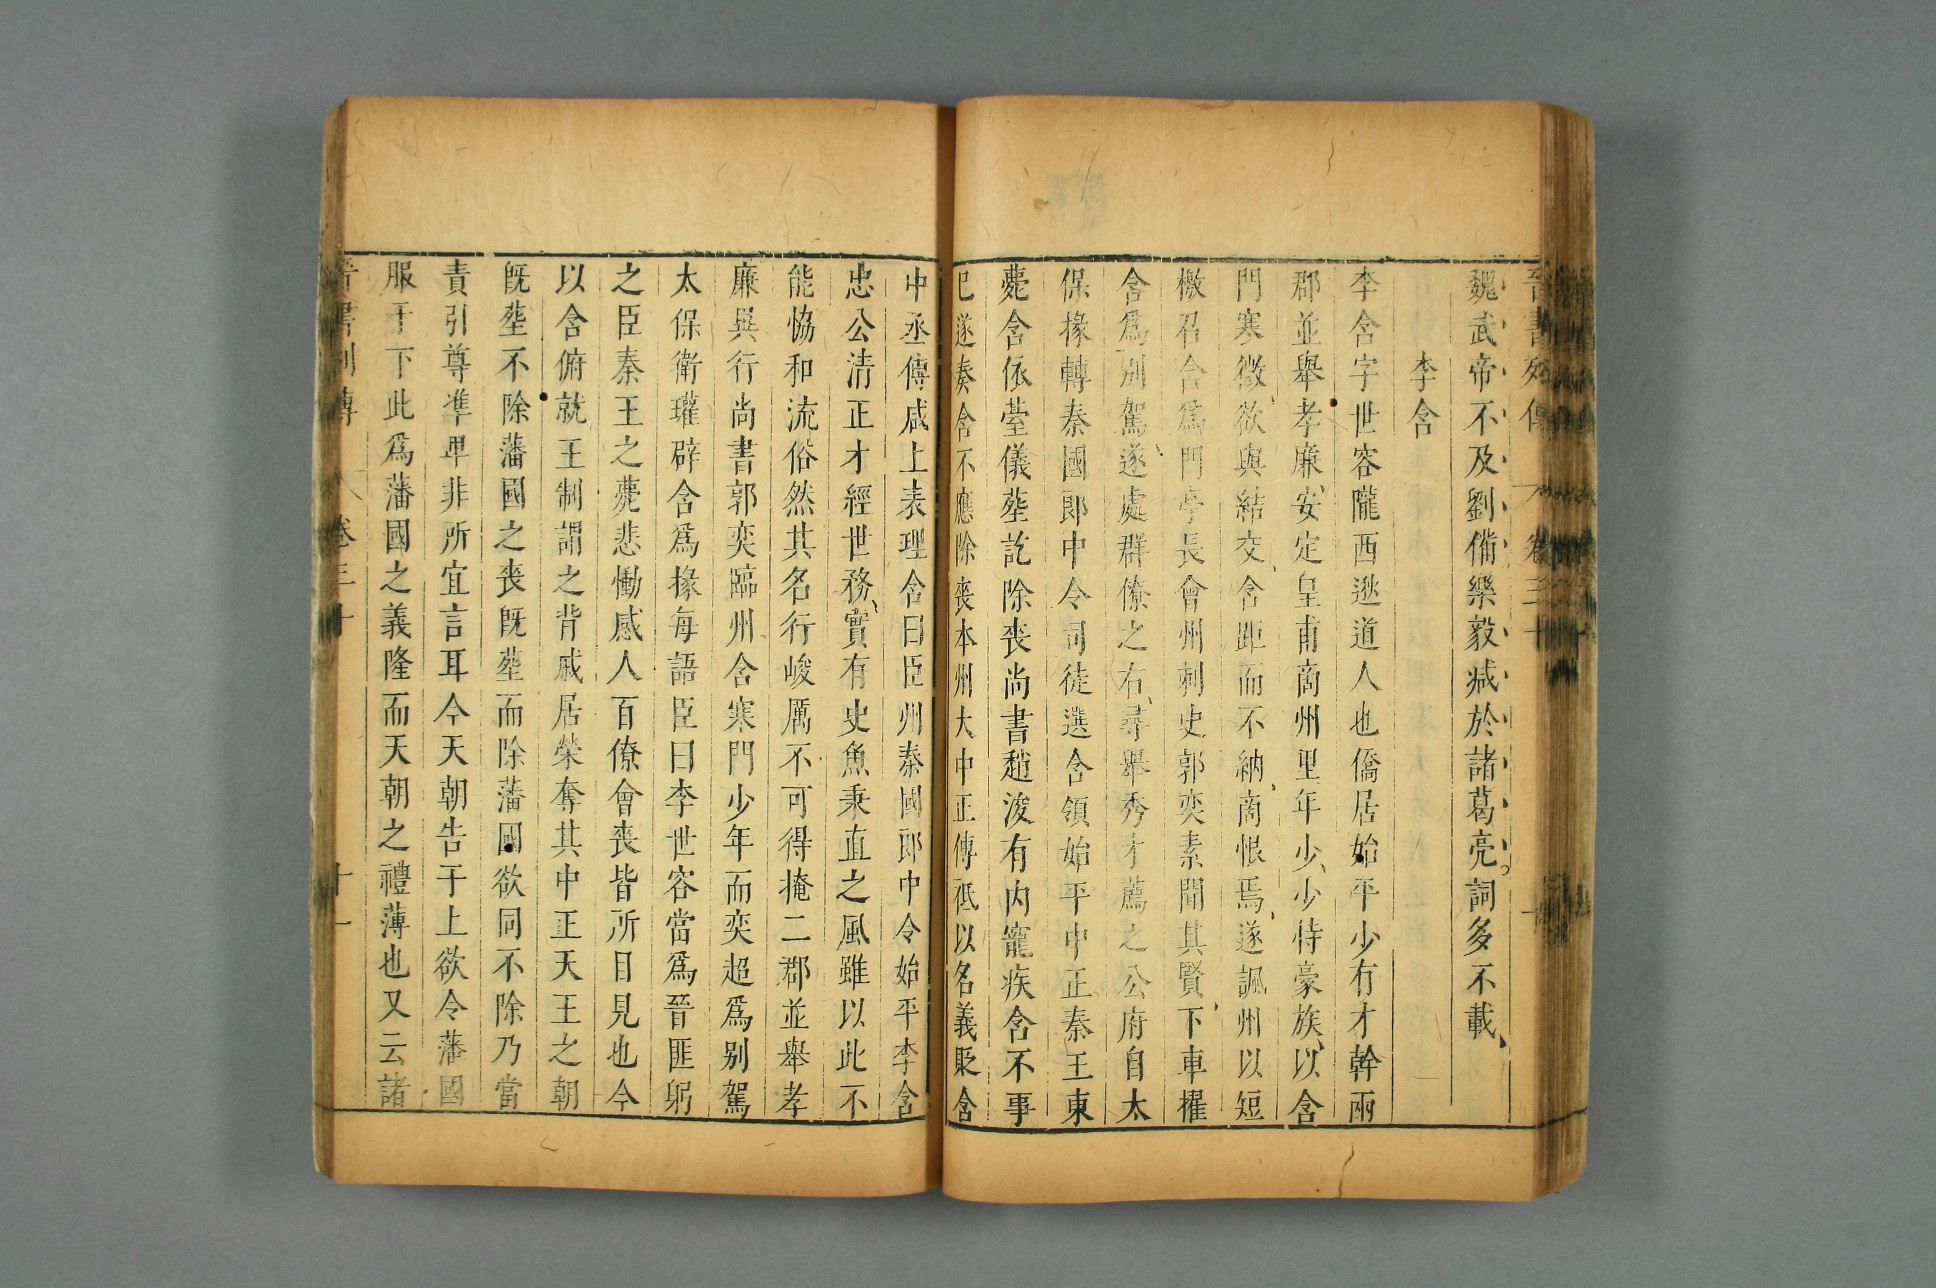 晉書列傳 卷三十
魏武帝不及劉備樂毅减於諸葛亮詞多不載
李含
李含字世容隴西逖道人也僑居始平少有才幹兩
郡並舉孝廉安定皇甫商州里年少少恃豪族以含
門寒微欲與結交含距而不納商恨焉遂諷州以短
檄召含爲門亭長會州刺史郭奕素聞其賢下車擢
含爲别駕遂處群僚之右尋舉秀才薦之公府自太
保掾轉秦國郎中令司徒選含領始平中正秦王東
薨含依臺儀塟訖除喪尚書趙浚有内寵疾含不事
己遂奏含不應除喪本州大中正傅祗以名義貶含
中丞傅咸上表理含曰臣州秦國郎中令始平李含
忠公清正才經世務實有史魚秉直之風雖以此不
能恊和流俗然其名行峻厲不可得掩二郡並舉孝
廉異行尚書郭奕臨州含寒門少年而奕超爲别駕
太保衛瓘辟含爲掾每語臣曰李世容當爲晉匪躬
之臣秦王之薨悲慟感人百僚會喪皆所目見也今
以含俯就王制謂之背戚居榮奪其中正天王之朝
既塟不除藩國之喪既塟而除藩國欲同不除乃當
責引尊準卑非所宜言耳今天朝告于上欲令藩國
服于下此爲藩國之義隆而天朝之禮薄也又云諸
晉書列傳 卷三十 十一